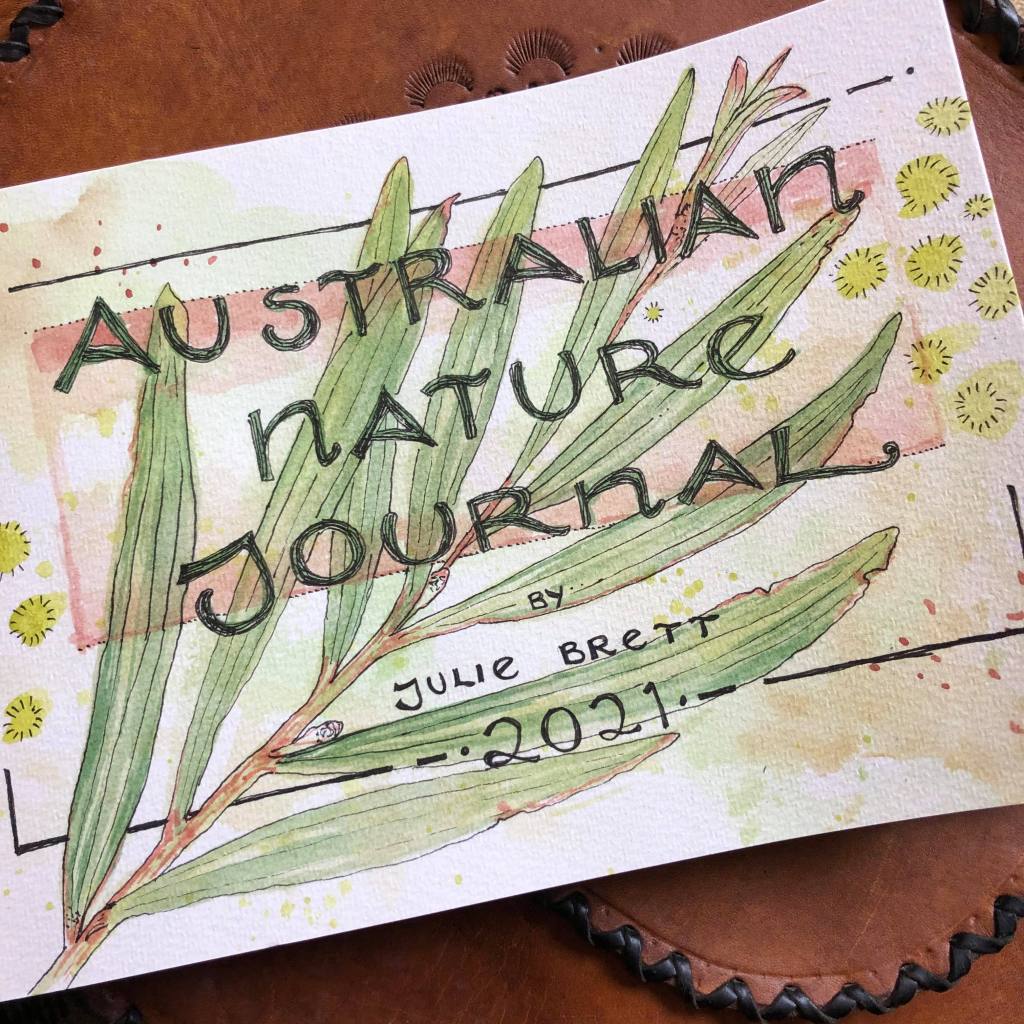 AUSTRALIAN
NATURE
JOURNAL
BY
JULIE BRETT
2021